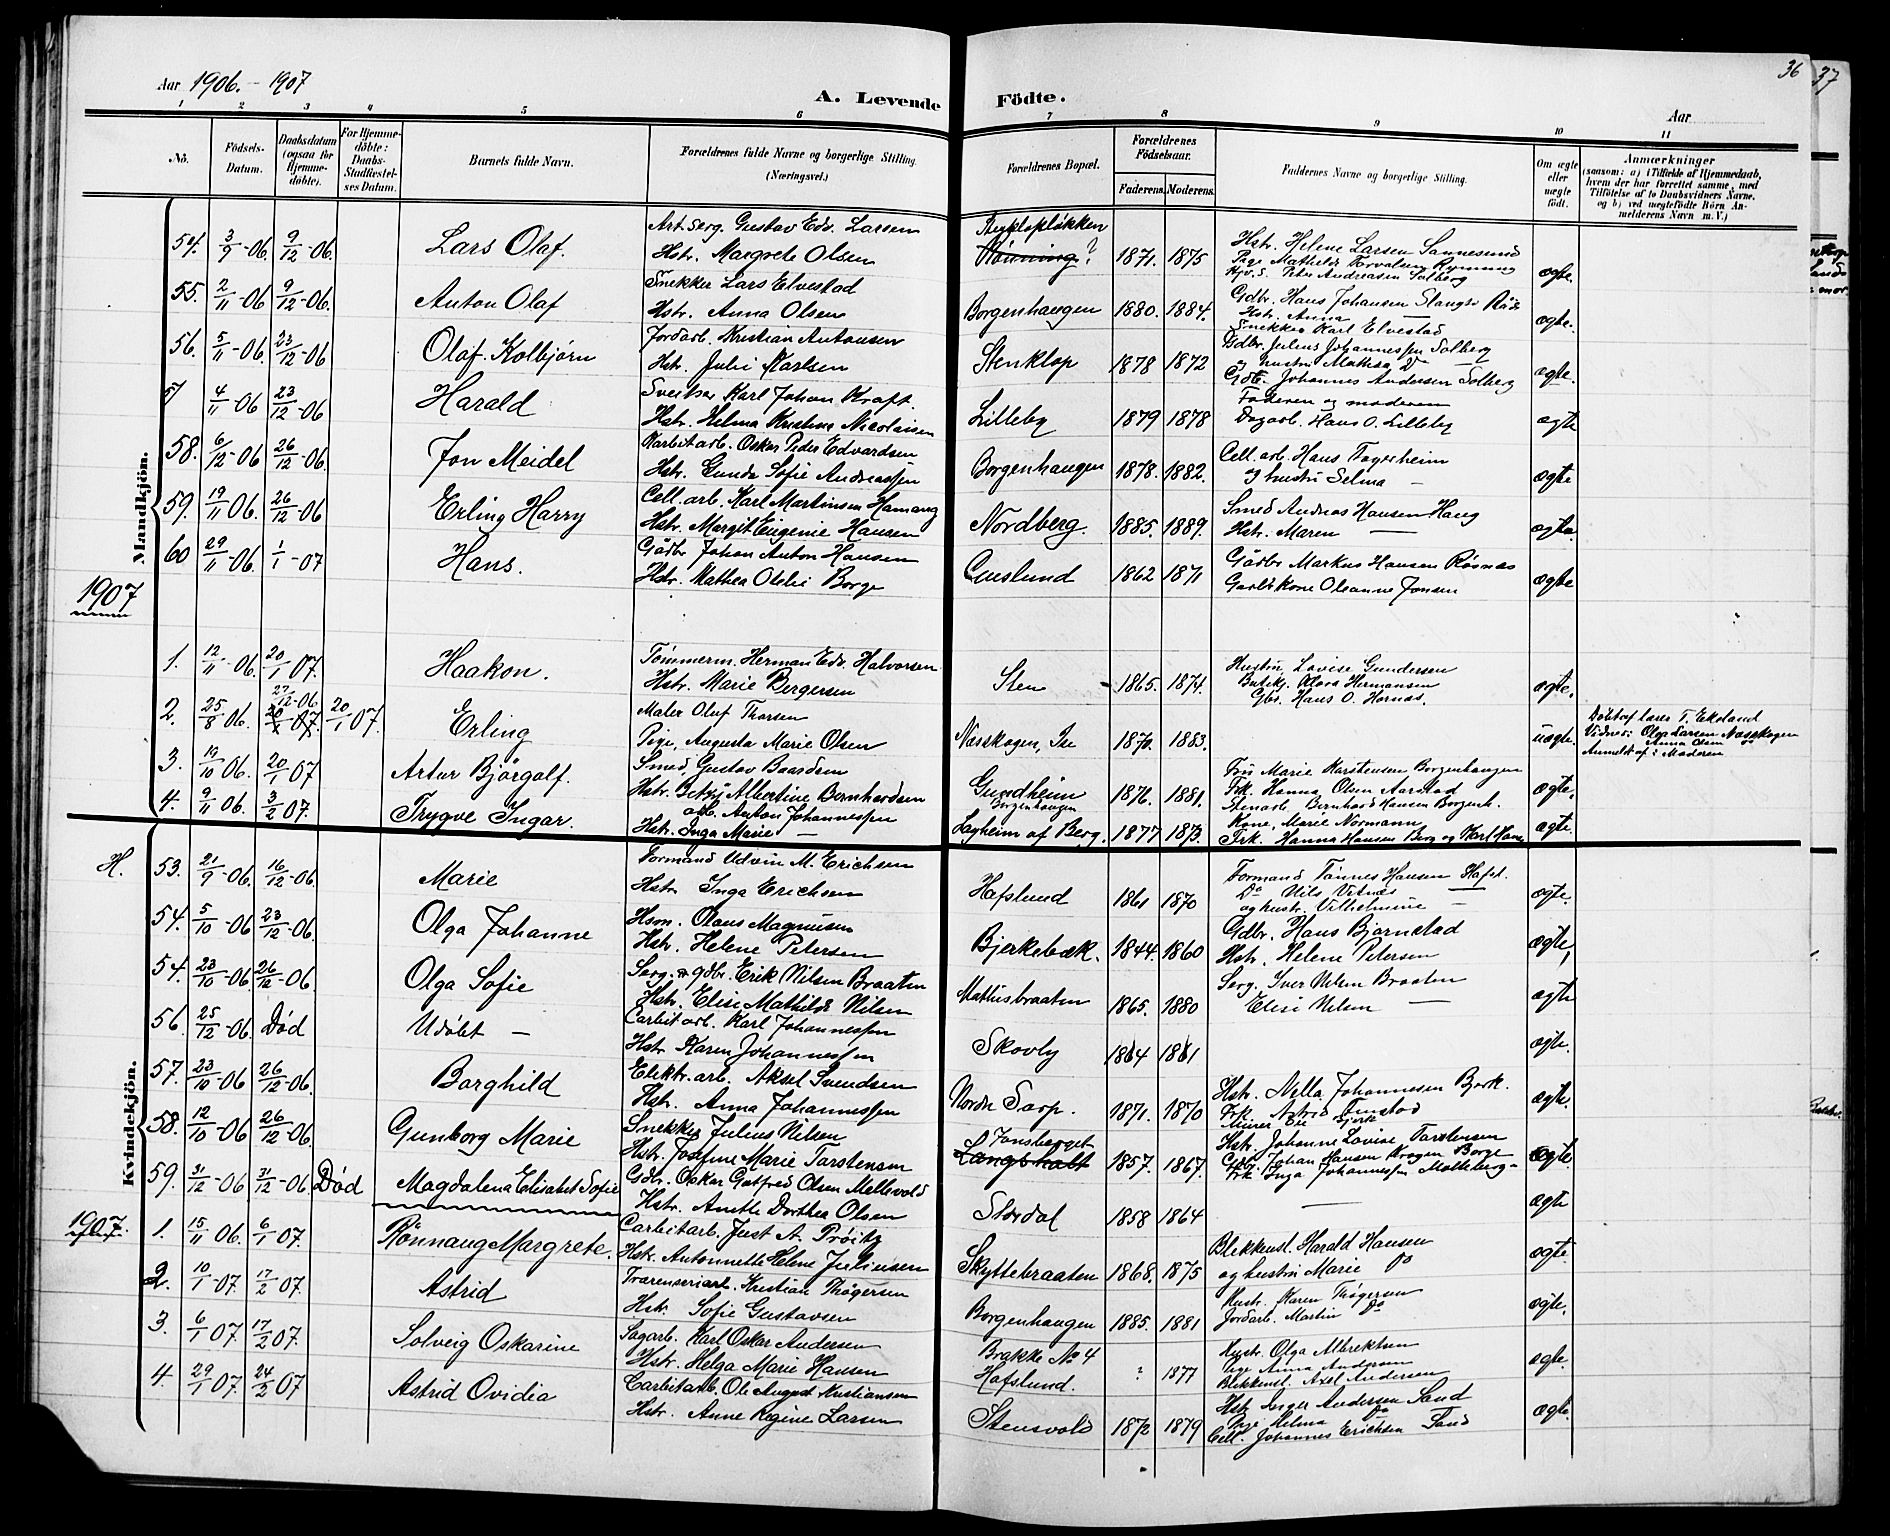 Aar 1906. - 1907
A. Levende Födte.
Aar
36
37
1 2 3 4 5 6 7 8 9 10 11
No.
Födsels-Datum.
Daabsdatum (ogsaa for Hjemmedöbte).
For Hjemmedöbte: Daabs-Stadfæstelses Datum.
Barnets fulde Navn.
Forældrenes fulde Navne og borgerlige Stilling. (Næringsvei.)
Forældrenes Bopæl.
Forældrenes Födselsaar.
Faderens. Moderens.
Faddernes Navne og borgerlige Stilling.
Om ægte eller uægte födt.
Anmærkninger (saasom: a) i Tilfælde af Hjemmedaab, hvem der har forrettet samme, med Tilföielse af to Daabsvidners Navne, og b) ved uægtefödte Börn Anmelderens Navn m. V.)
Mandkjön.
54. 3/9-06 9/12-06. Lars Olaf. Art. Serg. Gustav Edv. Larsen Hstr. Margrete Olsen 1871. 1875 Hstr. Helene Larsen Sannesund Pige Mathilde Torvalsen Peter Andreasen Solberg ægte.
55. 2/11-06 9/12-06. Anton Olaf Snekker Lars Elvestad Hstr. Anna Olsen Borgenhaugen 1880. 1884. Gdbr. Hans Johansen Hstr. Anna — Snekker Karl Elvestad ægte.
56. 5/11-06. 23/12-06 Olaf Kolbjörn Jordarb. Kristian Antonsen Hstr. Julie Karlsen Stenklop 1878 1872 Gdbr. Julius Johannessen Solberg og hustru Mathea Do Gdb. Johannes Andersen Solberg ægte.
57 4/11-06 23/12-06 Harald Sveitser Karl Johan Kraft. Hstr. Helma Kristine Nicolaisen Lilleby 1879 1878 Faderen og moderen Dagarb. Hans O. Lilleby ægte
58. 6/12-06 26/12-06. Jon Meidel Karbitarb. Oskar Peder Edvardsen Hstr. Gunda Sofie Andreassen Borgenhaugen 1878. 1882. Cell. arb. Hans Fagerheim og hustru Selma — ægte
59. 19/11-06. 26/12-06 Erling Harry Cell. arb. Karl Martinsen Hamang Hstr. Margit Eugenie Hansen Nordberg. 1885. 1889. Smed Andreas Hansen Haug Hstr. Maren — ægte
60 29/11-06. 1/1-07 Hans. Gårdbr Johan Anton Hansen Hstr. Mathea Otelie Borge Guslund 1862 1871 Gårdbr Markus Hansen Røsnæs Gaardkone Oleanne Jonsen ægte
1907
1. 12/11-06. 20/1 07. Haakon. Tömmerm. Herman Edv. Halvorsen Hstr. Marie Bergersen Sten 1865. 1874. Hustru Lovise Gundersen Butikj. Klara Hermansen Gbr. Hans O. Hornæs. ægte.
2. 25/8 06. 27/12-06 20/1 07. 20/1 07. Erling Maler Oluf Thorsen Pige, Augusta Marie Olsen Næsskogen, Ise 1870. 1883. uægte. Döbt af lærer T. Ekeland Vidner: Olga Larsen Næsskogen Anna Olsen do Anmeldt af: Moderen
3. 19/10 06. 20/1 07 Artur Bjørgolf. Smed, Gustav Baardsen Hstr. Betzy Albertine Bernhardsen Gundheim Borgenhaugen 1876. 1881. Fru Marie Karstensen Borgenhaugen Frk. Hanna Olsen Aarstad Stenarb Bernhard Hansen Borgenh. ægte.
4. 9/11 06. 3/2 07. Trygve Ingar. arb. Anton Johannessen Hstr. Inga Marie — Layheim af Berg. 1877 1873. Kone, Marie Normann Frk. Hanna Hansen Berg og Karl Hansen ægte.
H.
Kvindekjön.
53. 21/9-06. 16/12-06. Marie Formand Udvin M. Erichsen Hstr Inga Erichsen Hafslund 1861 1870 Formand Tönnes Hansen Hafsl. Do Nils Vitnæs — og hustr. Vilhelmine — ægte.
54. 5/10-06. 23/12-06. Olga Johanne Hsm. Olaus Magnusen Hstr. Helene Petersen Bjerkebæk. 1844. 1860 Gdbr. Hans Bjørnstad Hstr. Helene Petersen ægte,
54. 23/10-06. 26/12-06. Olga Sofie Serg. & gdbr. Erik Nilsen Braaten Hstr. Elise Mathilde Nilsen Mathisbraaten 1865. 1880 Serg. Iver Nilsen Braaten Elise Nilsen — ægte
56. 25/12-06. Död Udöbt — Carbitarb. Karl Johannessen Hstr Karen Johannessen Skovly 1864 1861 ægte.
57. 23/10-06 26/12-06. Borghild Elektr. arb. Aksel Svendsen Hstr. Anna Johannessen Nordre Sarp. 1871. 1870 Hstr. Nella Johannesen Bjerk. Frk Astrid ægte.
58. 12/10-06 26/12-06. Gunborg Marie Snekker Julius Nilsen Hstr. Josefine Marie Torstensen Jonsberget Langsholt 1857. 1867. Hstr. Johanne Lovise Torstensen Gdbr. Johan Hansen Krogen Borge Frk Inga Johannessen ægte.
59. 31/12-06 31/12-06. Död Magdalena Elisabet Sofie Gdbr. Oskar Gotfred Olsen Mellevold Hstr. Anette Dorthea Olsen Stordal 1858 1864 — ægte
1907.
1. 15/11 06. 6/1 07. Rönnaug Margrete. Carbitarb. Just A. Pröitz Hstr. Antonnette Helene Juliussen Skyttebraaten 1868. 1875 Blekkensl. Harald Hansen og hustru Marie do ægte.
2. 10/1-07. 17/2 07. Astrid Trærenseriarb. Kristian Thögersen Hstr. Sofie Gustavsen Borgenhaugen 1885. 1881 Hustr. Karen Thögersen Jordarb. Martin do ægte.
3. 6/1 07. 17/2 07. Solveig Oskarine Sagarb. Karl Oskar Andersen Hstr. Helga Marie Hansen Brakke No 4 Hafslund. ? 1877 Hustr. Olga Albrektsen Pige Anna Andersen Blekkensl. Axel Andersen ægte.
4. 29/1 07. 24/2 07 Astrid Ovidia Carbitarb. Ole August Kristiansen Hstr. Anne Regine Larsen Stensvold 1872 1879 Hstr. Inger Andersen Sand Pige Helma do Cell. Johannes Erichsen Sand ægte.